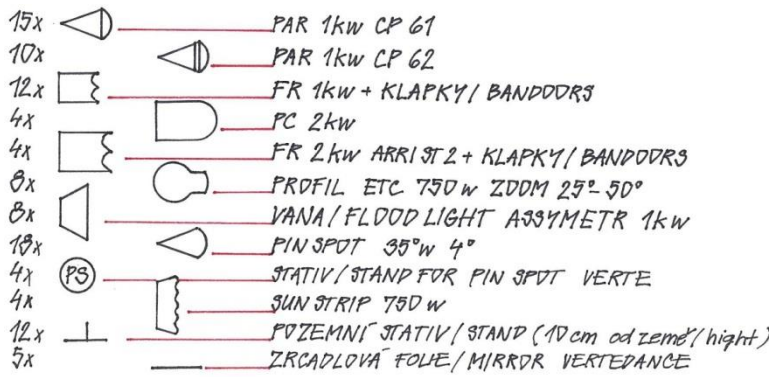 15x PAR 1kw CP 61
10x PAR 1kw CP 62
12x FR 1kw + KLAPKY/BANDOORS
4x PC 2kw
4x FR 2kw ARRI ST2 + KLAPKY/BANDOORS
8x PROFIL ETC 750w ZOOM 25°-50°
8x VANA/FLOOD LIGHT ASSYMETR 1kw
18x PIN SPOT 35°w 4°
4x PS STATIV/STAND FOR PIN SPOT VERTE
4x SUN STRIP 750 w
12x POZEMNÍ STATIV/STAND (10 cm od země/hight)
5x ZRCADLOVÁ FOLIE/MIRROR VERTEDANCE